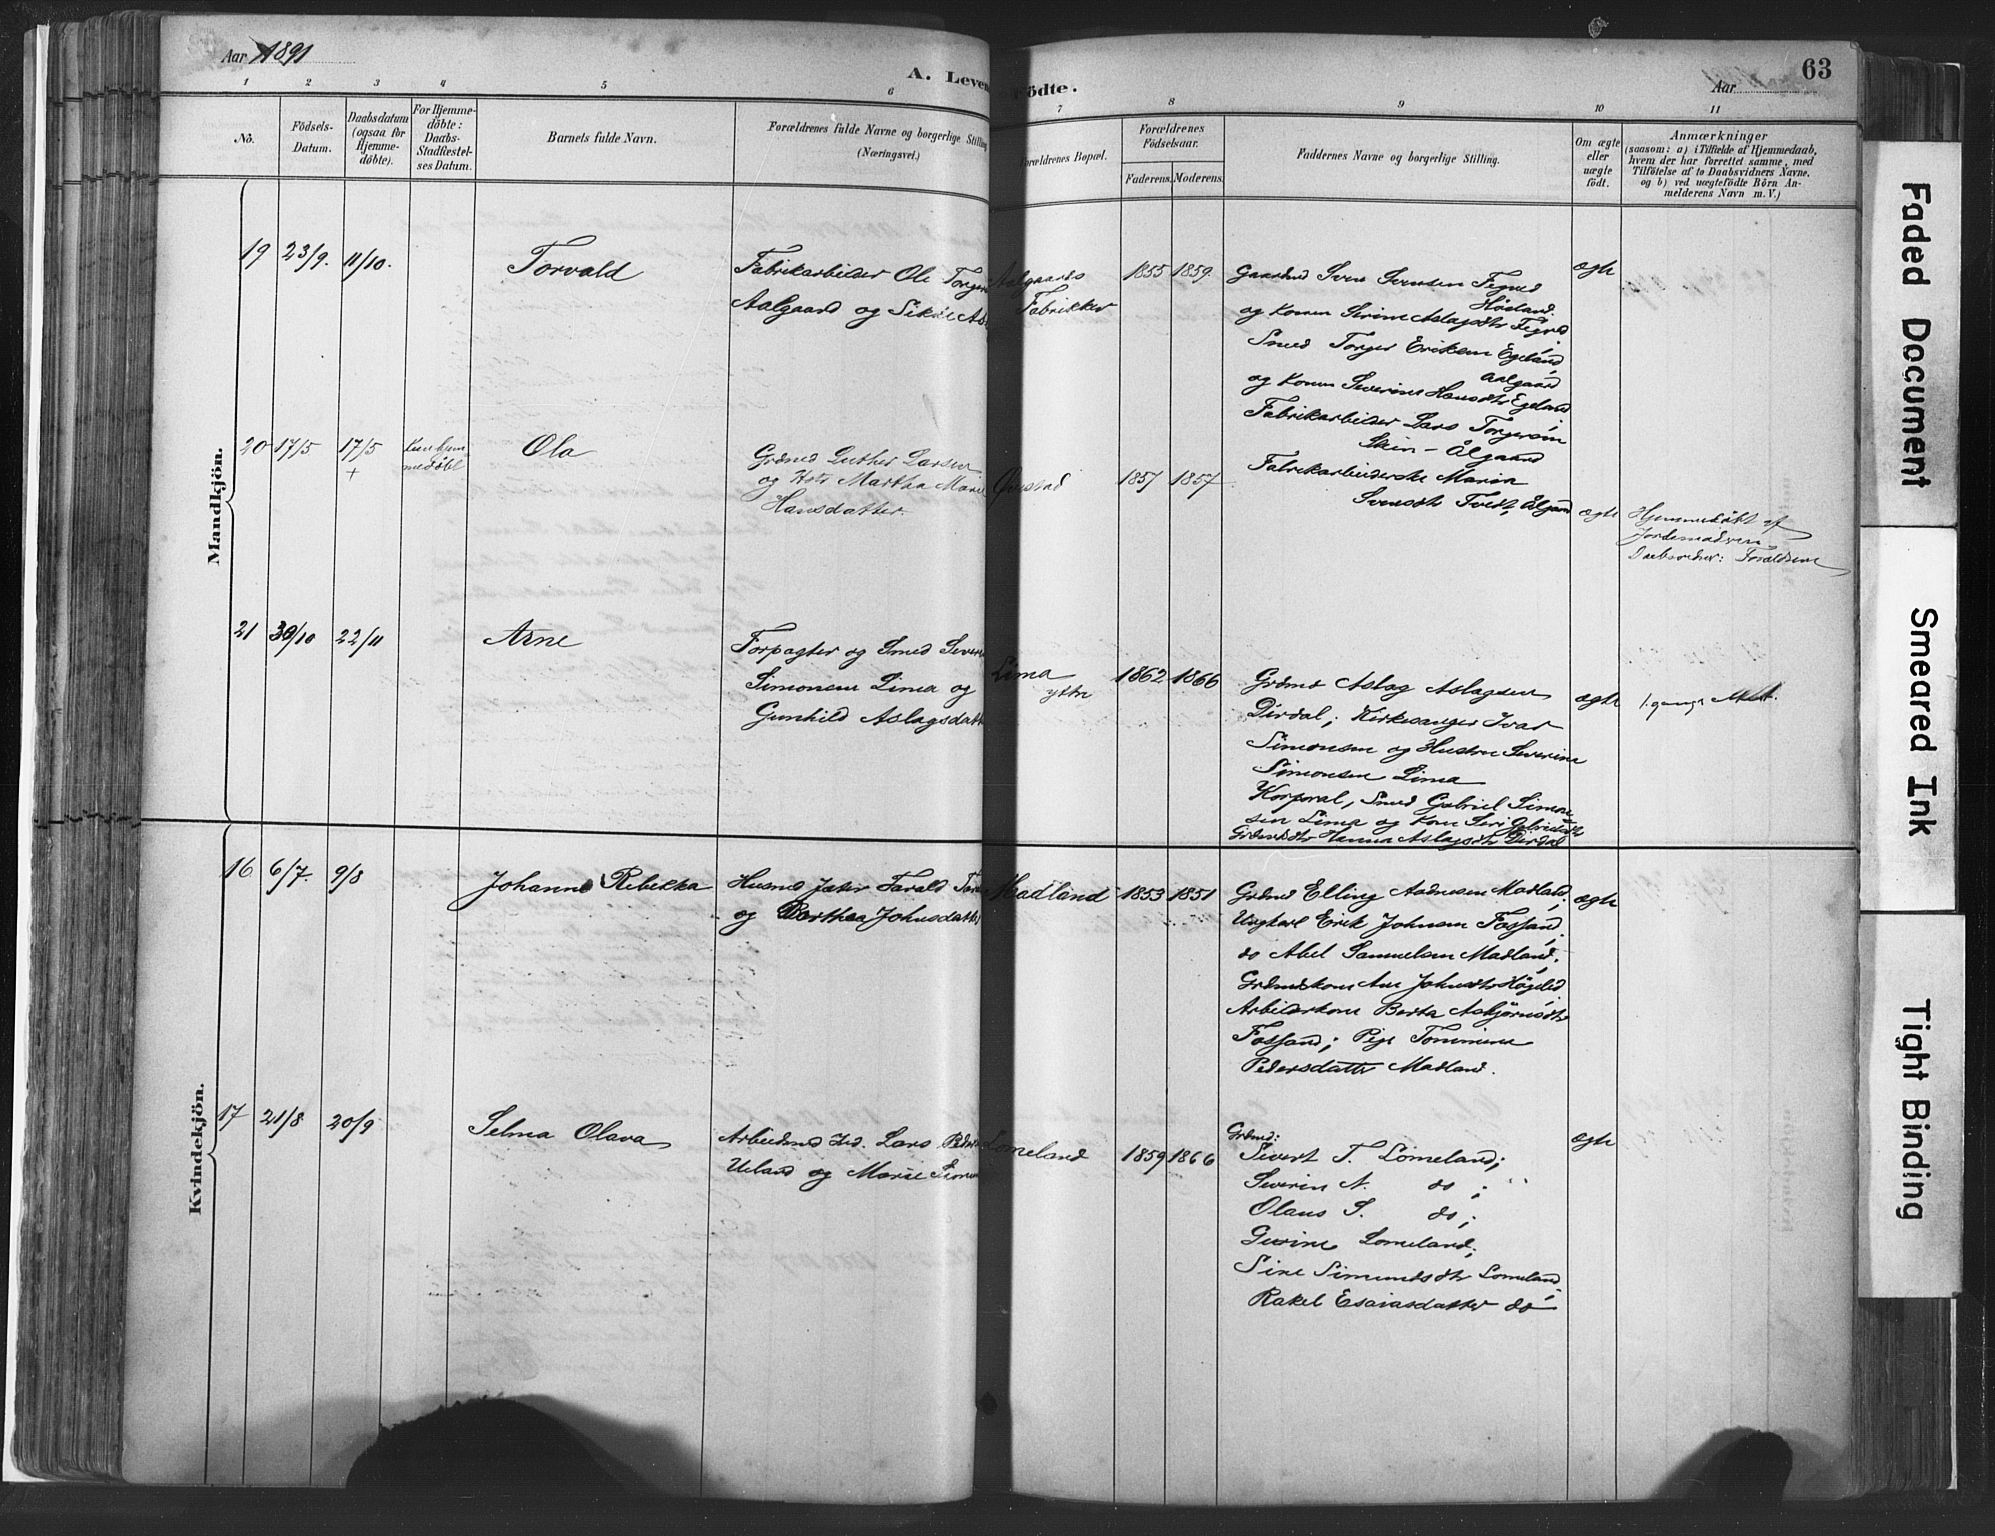 Aar 1891
A. Levende Födte.
63
Aar
1 2 3 4 5 6 7 8 9 10 11
No.
Födsels-
Datum.
Daabsdatum
(ogsaa for
Hjemme-
döbte).
For Hjemme-
döbte:
Daabs-
Stadfæstel-
ses Datum.
Barnets fulde Navn.
Forældrenes fulde Navne og borgerlige Stilling
(Næringsvei.)
Forældrenes Bopæl.
Forældrenes
Födselsaar.
Faderens. Moderens.
Faddernes Navne og borgerlige Stilling.
Om ægte
eller
uægte
födt.
Anmærkninger
(saasom: a) i Tilfælde af Hjemmedaab,
hvem der har forrettet samme, med
Tilföielse af to Daabsvidners Navne,
og b) ved uægtefödte Börn An-
melderens Navn m. V.)
Mandkjön.
19 23/9. 11/10. Torvald
Fabrikarbeider Ole Torgers
Aalgaard og Sikke As
Aalgaards
Fabrikker
1855 1859.
Gaardmd Sven Svensen Tegned
Høiland.
og Konen Serine Aslagsdtr Tegned
Smed Torger Eriksen Egeland
Aalgaard
og Konen Severine Hansdtr Egeland
Fabrikarbeider Lars Torgersen
Skin - Ålgaard
Fabrikarbeiderske Maria
Svensdtr Tvedt, Ålgaard
ægte
20 17/5 17/5
+
Kun hjem
medøbt
Ola
Grdmd Luther Larsen
og Hstr Martha Marie
Hansdatter.
1857 1857
ægte
Hjemmedøbt af
Jordemoderen
Daabsvidner: Forældrene
21 30/10 22/11 Arne
Forpagter og Smed Severin
Simonsen Lima og
Gunhild Aslagsdatt
Lima
ytre
1862 1866
Grdmd Aslag Aslagsen
Dirdal; Kirkesanger Ivar
Simonsen og Hustru Severine
Simonsen Lima
Korporal, Smed Gabriel Simon-
sen Lima og Kone Seri Gabrielsdtr
Grdmdsdtr Hanna Aslagsdtr Dirdal
ægte
Kvindekjön.
16 6/7. 9/8 Johanne Rebekka
Husmd Jæter Farald Tor
og Berthea Johnsdatter
Madland
1853 1851
Grdmd Elling Aadnesen Madland;
Ungkarl Erik Johnsen Fossand;
do Abel Samuelsen Madland;
Grdmdskone Ane Johnsdtr Høgelid
Arbeiderkone Berta Asbjørnsdtr
Fossand; Pige Tommine
Pedersdatter Madland.
ægte
17 21/8 20/9 Selma Olava
Arbeidsmd Isd. Lars Peders
Ueland og Marie Simon
Lomeland
1859 1866
Grdmd:
Sivert T. Lomeland;
Severin N. do;
Olaus S. do;
Gurine Lomeland;
Sine Simundsdtr Lomeland;
Rakel Esaiasdatter do
ægte
Faded Document
Smeared Ink
Tight Binding